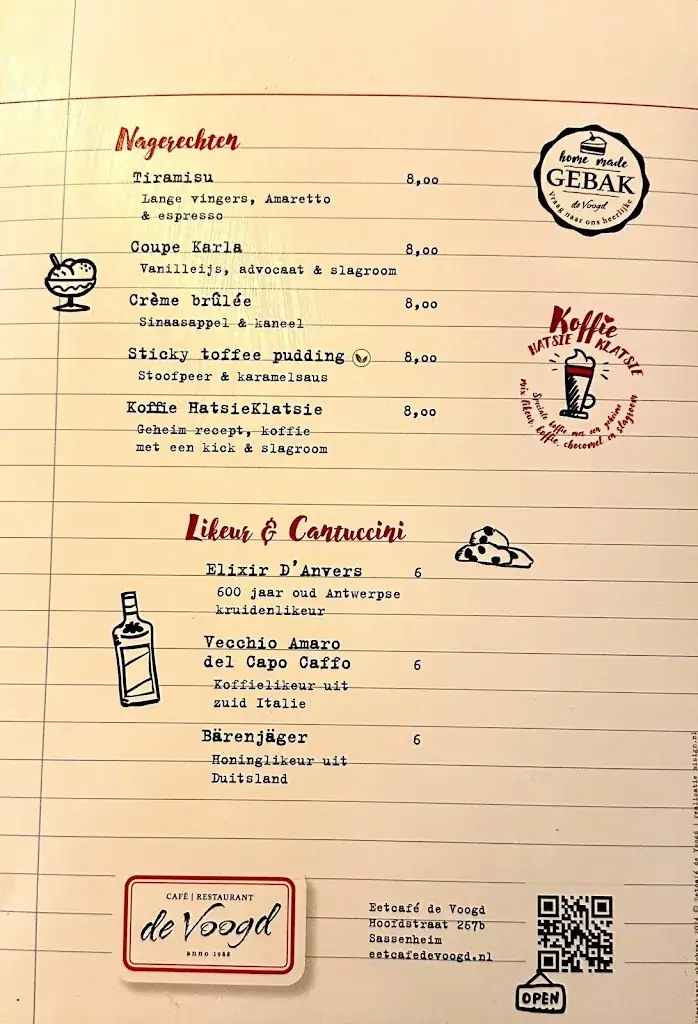 Nagerechten
Tiramisu 8,00
Lange vingers, Amaretto
& espresso
Coupe Karla 8,00
Vanilleijs, advocaat & slagroom
Crème brûlée 8,00
Sinaasappel & kaneel
Sticky toffee pudding 8,00
Stoofpeer & karamelsaus
Koffie HatsieKlatsie 8,00
Geheim recept, koffie
met een kick & slagroom
home made
GEBAK
de Voogd
Vraag naar ons heerlijke
Koffie
HATSIE KLATSIE
Speciale koffie met een geheime
mix likeur, koffie, chocomel en slagroom
Likeur & Cantuccini
Elixir D'Anvers 6
600 jaar oud Antwerpse
kruidenlikeur
Vecchio Amaro
del Capo Caffo 6
Koffielikeur uit
zuid Italie
Bärenjäger 6
Honinglikeur uit
Duitsland
CAFÉ | RESTAURANT
de Voogd
anno 1988
Eetcafé de Voogd
Hoofdstraat 267b
Sassenheim
eetcafedevoogd.nl
OPEN
2024 © Eetcafé de Voogd | realisatie